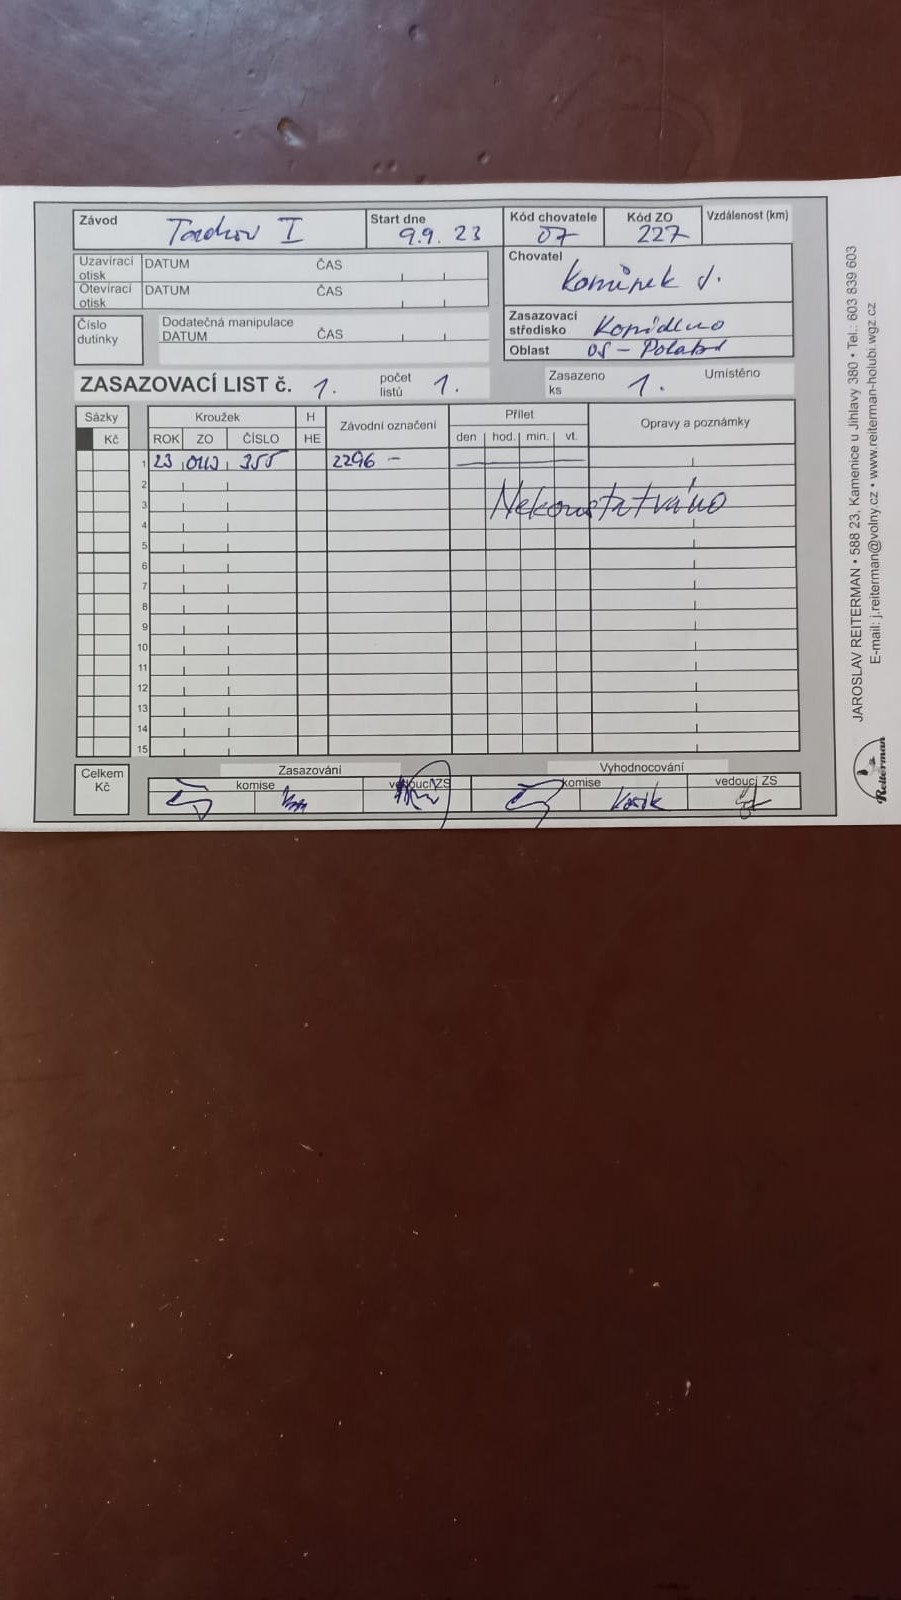 Závod Tachov I Start dne 9.9.23 Kód chovatele 07 Kód ZO 227 Vzdálenost (km)
Uzavírací otisk DATUM ČAS
Otevírací otisk DATUM ČAS
Chovatel Komínek J.
Číslo dutinky Dodatečná manipulace DATUM ČAS
Zasazovací středisko Kopidlno
Oblast 05 - Polabí
ZASAZOVACÍ LIST č. 1. počet listů 1. Zasazeno ks 1. Umístěno
Sázky Kroužek H Závodní označení Přílet Opravy a poznámky
Kč ROK ZO ČÍSLO HE den hod. min. vt.
1 23 355 2296 -
2
3 Nekonstatváno
4
5
6
7
8
9
10
11
12
13
14
15
Celkem Kč Zasazování Vyhodnocování
komise vedoucí ZS komise vedoucí ZS
JAROSLAV REITERMAN • 588 23, Kamenice u Jihlavy 380 • Tel.: 603 839 603
E-mail: j.reiterman@volny.cz • www.reiterman-holubi.wgz.cz
Reiterman